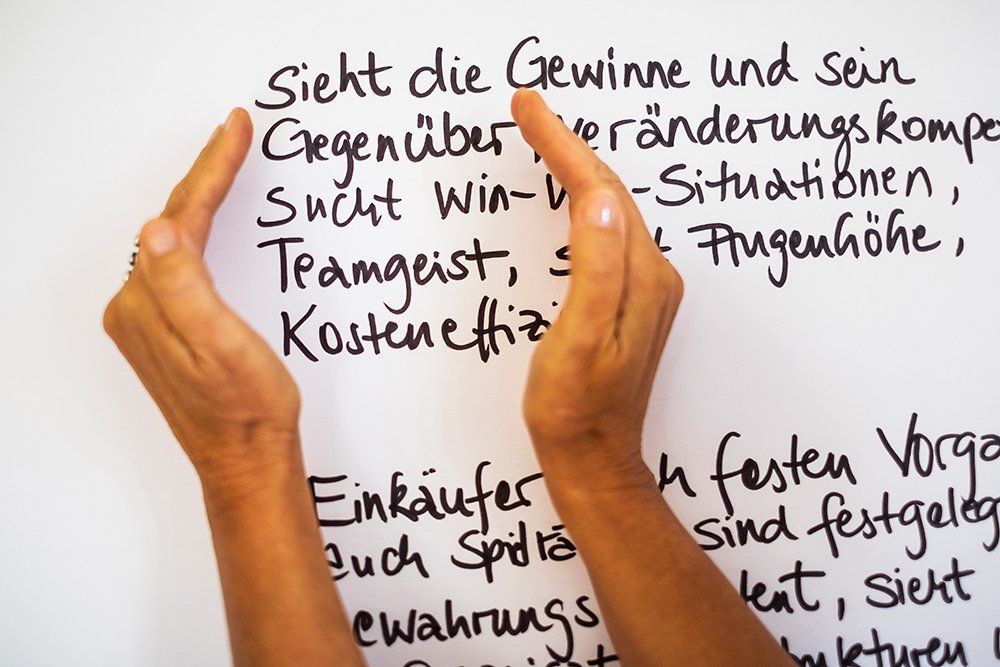 Sieht die Gewinne und sein
Gegenüber, veränderungskompe
sucht Win-W -Situationen,
Teamgeist, s t Augenhöhe,
Kosteneffizi
Einkäufer h festen Vorga
euch sind festgeleg
ewahrungs ent, sieht
ukturen